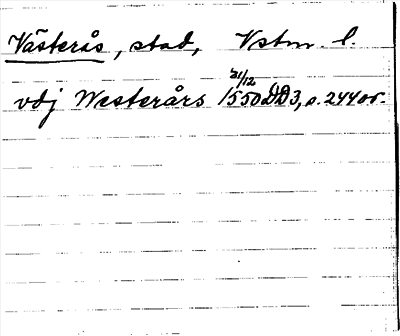 Västerås, stad, Vstm. l.
vdj Westerårs 21/12 1550 DD3, s. 244 or.